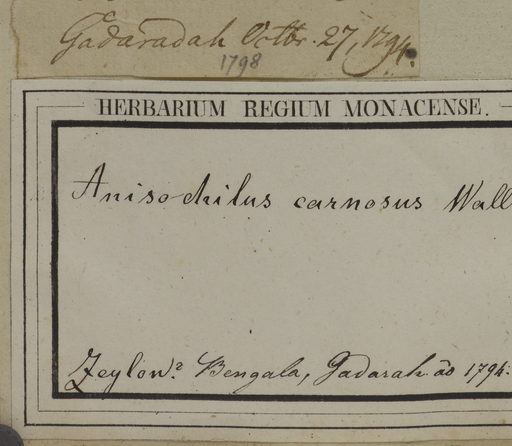 Gadaradah Octbr. 27, 1794.
1798
HERBARIUM REGIUM MONACENSE.
Anisochilus carnosus Wall
Zeylon? Bengala, Gadarah ao 1794.